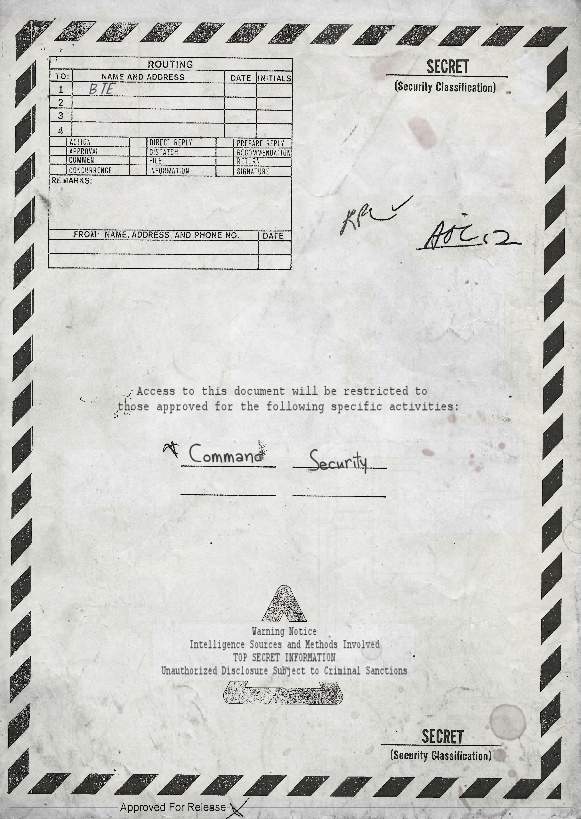 ROUTING
TO: NAME AND ADDRESS DATE INITIALS
1 BTE
2
3
4
ACTION DIRECT REPLY PREPARE REPLY
APPROVAL DISPATCH RECOMMENDATION
COMMENT FILE RETURN
CONCURRENCE INFORMATION SIGNATURE
REMARKS:
FROM: NAME, ADDRESS, AND PHONE NO. DATE
SECRET
(Security Classification)
Access to this document will be restricted to
those approved for the following specific activities:
Command Security
Warning Notice
Intelligence Sources and Methods Involved
TOP SECRET INFORMATION
Unauthorized Disclosure Subject to Criminal Sanctions
SECRET
(Security Classification)
Approved For Release